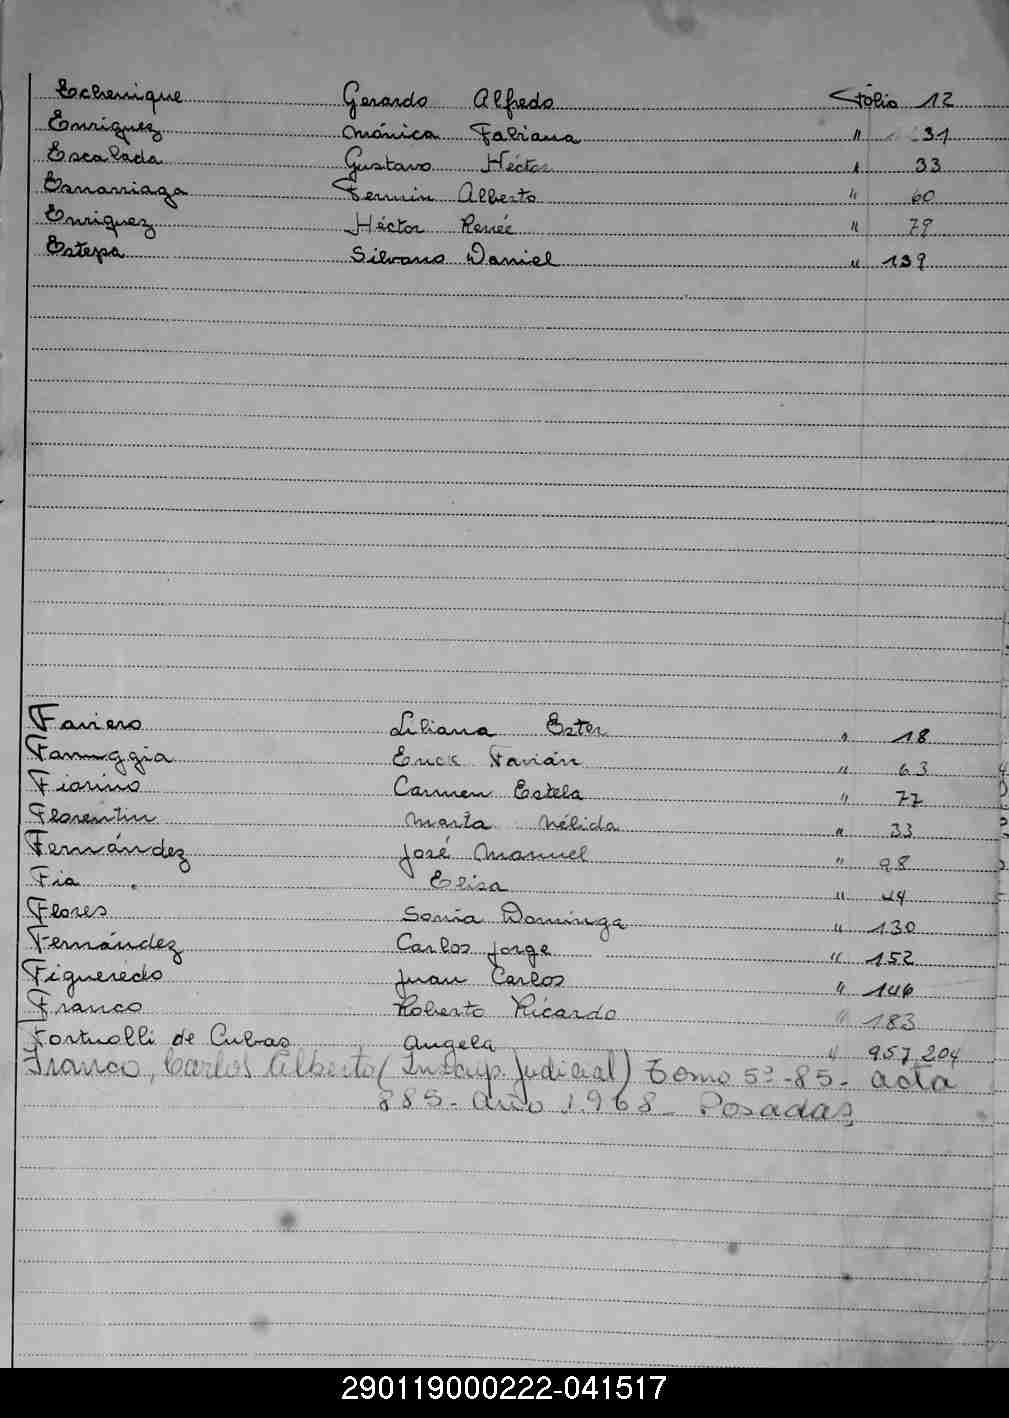 Echenique Gerardo Alfredo Fólio 12
Enriquez Mónica Fabiana " 31
Escalada Gustavo Héctor " 33
Esmarriaga Fermin Alberto " 60
Enriquez Héctor Reneé " 79
Estepa Silvano Daniel " 139
Faviero Liliana Ester " 18
Fanuggia Erick Favián " 63
Fiorino Carmen Estela " 77
Florentin Marta Nélida " 33
Fernández José Manuel " 98
Fia Elisa " 44
Flores Sonia Dominga " 130
Fernández Carlos Jorge " 152
Figueredo Juan Carlos " 146
Franco Roberto Ricardo " 183
Fortuolli de Cubas Angela " 957, 204
Franco, Carlos Alberto (Inscrip. Judicial) Tomo 5º -85- acta
885- año 1.968- Posadas,
290119000222-041517